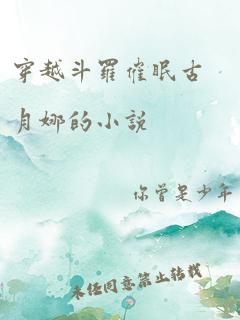 穿越斗羅催眠古
月娜的小說
你曾是少年
未经同意禁止转载